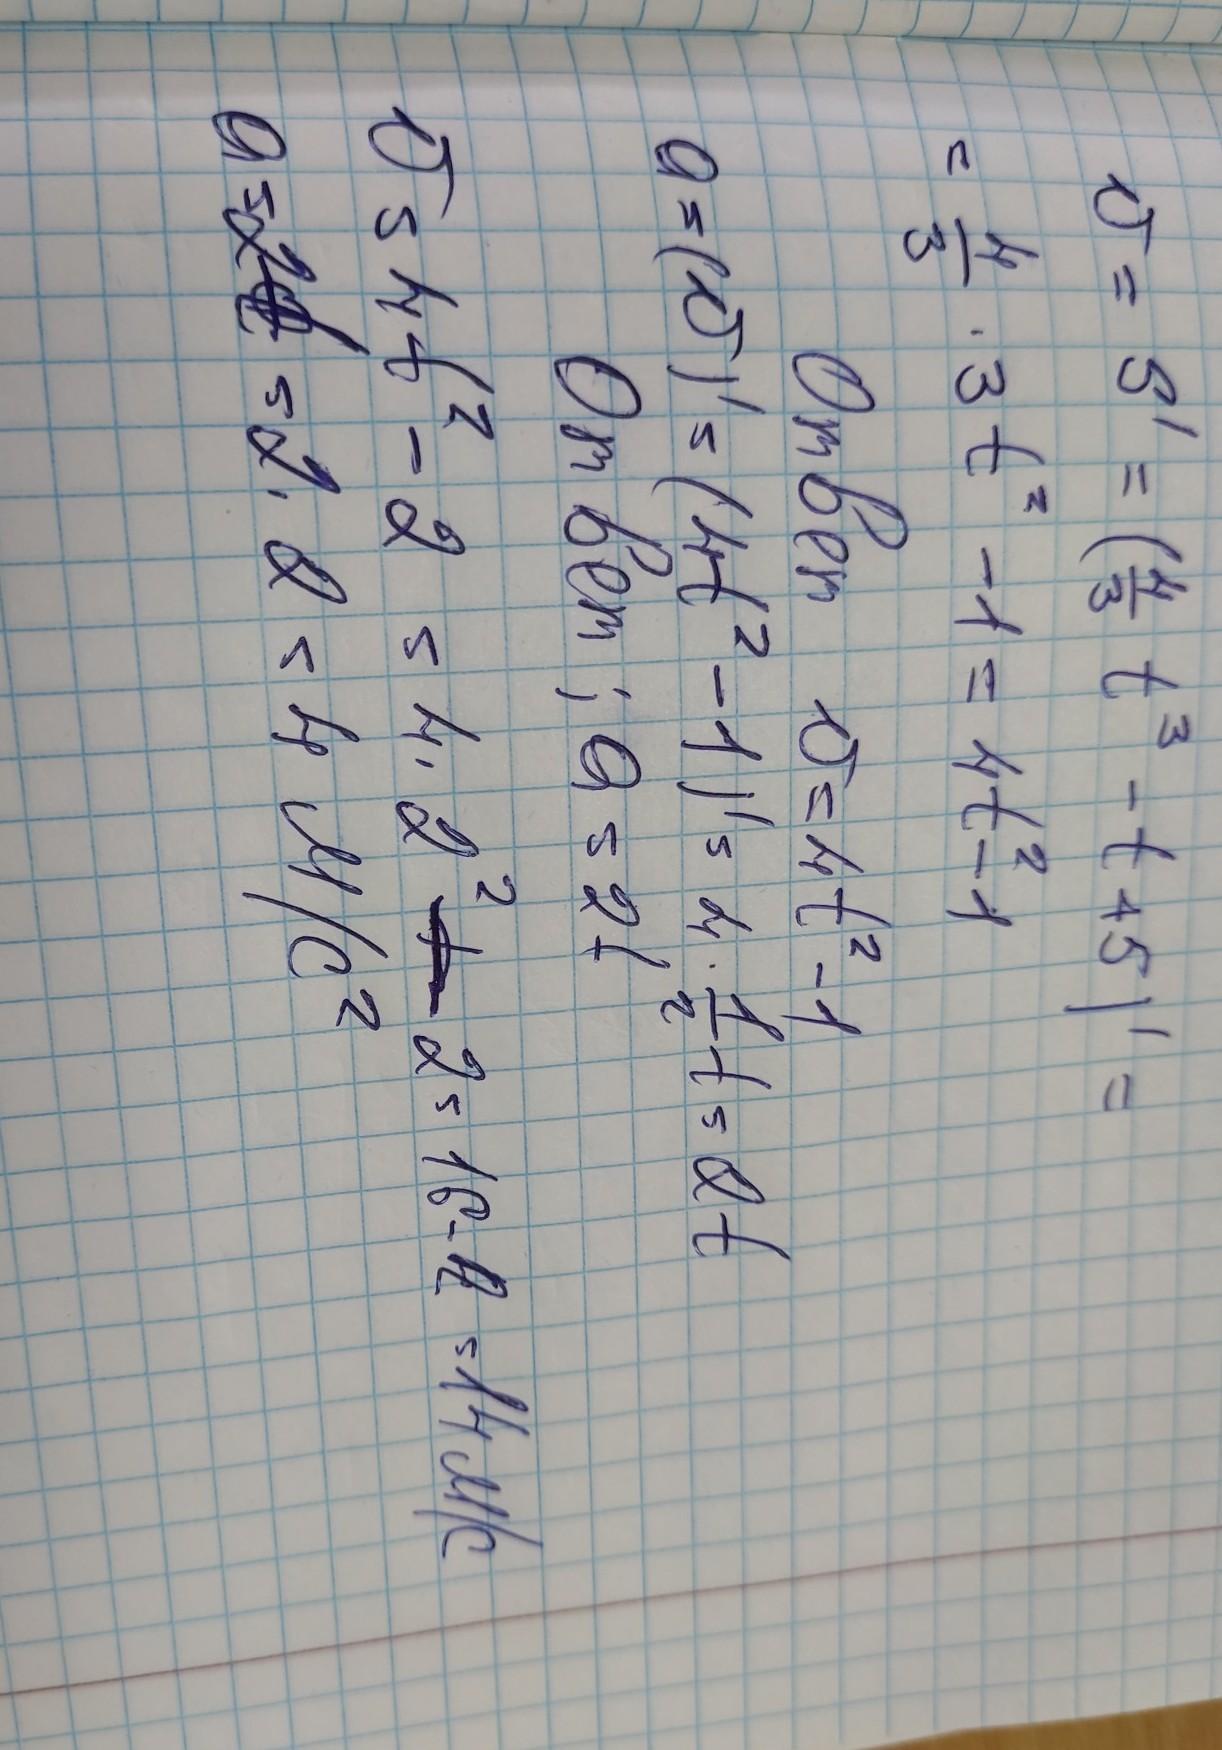 v = S' = (4/3 t³ - t + 5)' =
= 4/3 · 3t² - 1 = 4t² - 1
Ответ v = 4t² - 1
a = (v)' = (4t² - 1)' = 4 · 1/2 t = 2t
Ответ; a = 2t
v = 4t² - 2 = 4 · 2² - 2 = 16 - 2 = 14 м/с
a = = 2 · 2 = 4 м/с²